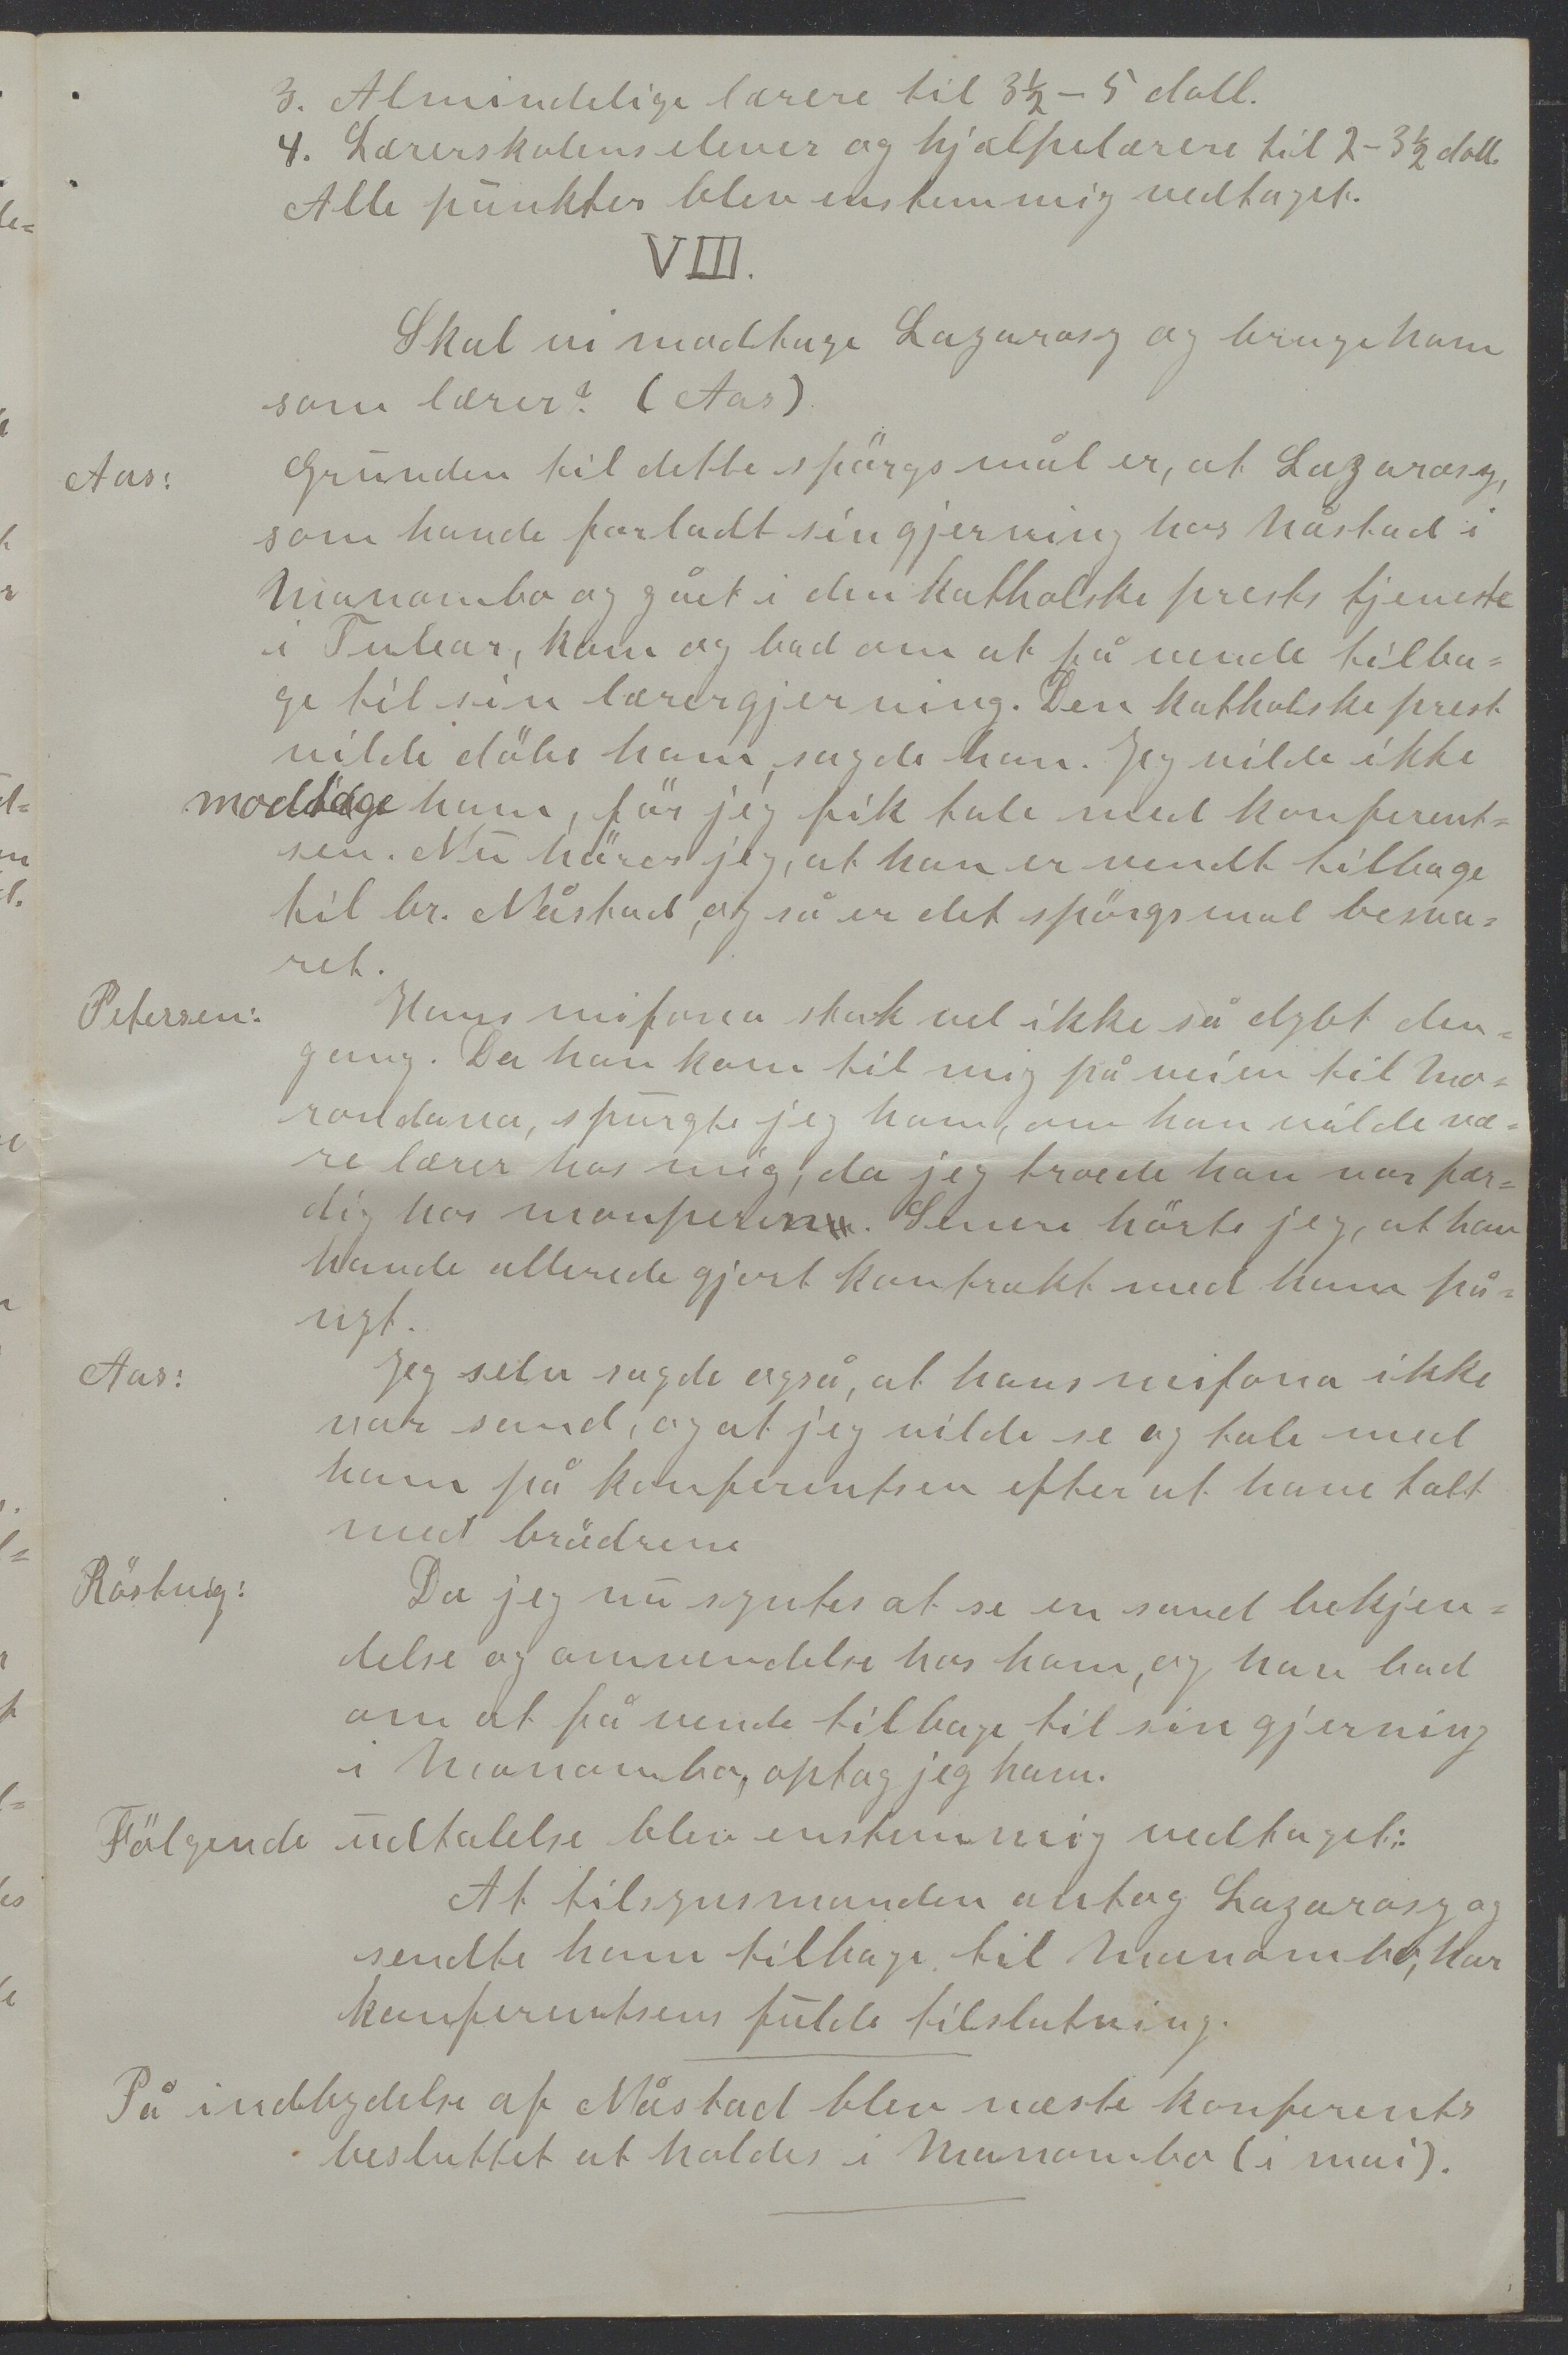 3. Almindelige lærere til 3½ – 5 doll.
4. Lærerskolens elever og hjælpelærere til 2 – 3½ doll.
Alle punkter blev enstemmig vedtaget.
VIII.
Skal vi modtage Lazarosy og bruge ham
som lærer? (Aas)
Aas: Grunden til dette spörgsmål er, at Lazarosy,
som havde forladt sin gjerning hos Nåstad i
Manombo og gået i den katholske prests tjeneste
i Tulear, kom og bad om at få vende tilba=
ge til sin lærergjerning. Den katholske prest
vilde döbe ham, sagde han. Jeg vilde ikke
modtage ham, för jeg fik tale med konferent=
sen. Nu hörer jeg, at han er vendt tilbage
til br. Nåstad, og så er det spörgsmal besva=
ret.
Petersen: Hans mifona stak vel ikke så dybt den=
gang. Da han kom til mig på veien til Mo=
rondava, spurgte jeg ham, om han vilde væ=
re lærer hos mig, da jeg troede han var fær=
dig hos monperen. Senere hörte jeg, at han
havde allerede gjort kontrakt med ham på=
nyt.
Aas: Jeg selv sagde også, at hans mifona ikke
var sand, og at jeg vilde se og tale med
ham på konferentsen efter at have talt
med brödrene
Röstvig: Da jeg nu syntes at se en sand bekjen=
delse og omvendelse hos ham, og han bad
om at få vende tilbage til sin gjerning
i Manombo, optog jeg ham.
Fölgende udtalelse blev enstemmig vedtaget:
At tilsynsmanden antog Lazarosy og
sendte ham tilbage til Manombo, har
konferentsens fulde tilslutning.
På indbydelse af Nåstad blev næste konferents
besluttet at holdes i Manombo (i mai).